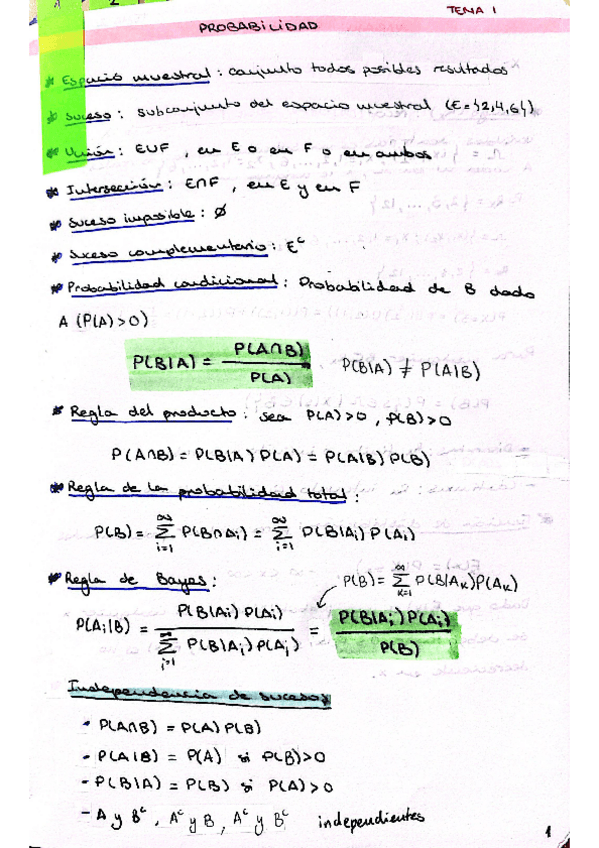 TEMA 1
PROBABILIDAD
* Espacio muestral: conjunto todos posibles resultados
* Suceso: subconjunto del espacio muestral (E={2,4,6})
* Unión: E∪F, en E o en F o en ambos
* Intersección: E∩F, en E y en F
* Suceso imposible: ∅
* Suceso complementario: E^c
* Probabilidad condicional: Probabilidad de B dado
A (P(A)>0)
P(B|A) = P(A∩B) / P(A)   P(B|A) ≠ P(A|B)
* Regla del producto: sea P(A)>0, P(B)>0
P(A∩B) = P(B|A) P(A) = P(A|B) P(B)
* Regla de la probabilidad total:
P(B) = ∑_{i=1}^{∞} P(B∩Ai) = ∑_{i=1}^{∞} P(B|Ai) P(Ai)
* Regla de Bayes:   P(B) = ∑_{k=1}^{∞} P(B|A_k)P(A_k)
P(Ai|B) = P(B|Ai) P(Ai) / ∑_{j=1}^{∞} P(B|Aj) P(Aj) = P(B|Ai) P(Ai) / P(B)
Independencia de sucesos
- P(A∩B) = P(A) P(B)
- P(A|B) = P(A) si P(B)>0
- P(B|A) = P(B) si P(A)>0
- A y B^c, A^c y B, A^c y B^c independientes
1